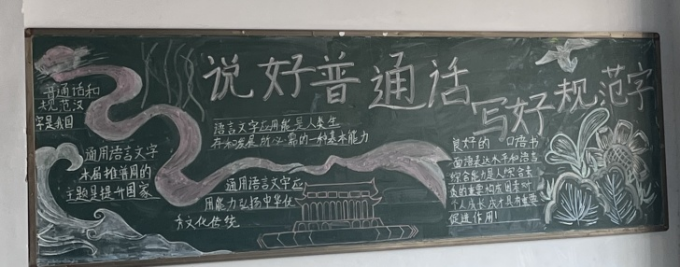 说好普通话
写好规范字
普通话和
规范汉
字是我国
语言文字应用能是人类生
存和发展所必需的一种基本能力
通用语言文字
水易推普用的
主题是提升国家
通用语言文字应
用能力弘扬中华优
秀文化传统
良好的 口语书
面语表达水平和语言
综合能力是人综合素
质的重要构成因素对
个人成长成才具有重要
促进作用!